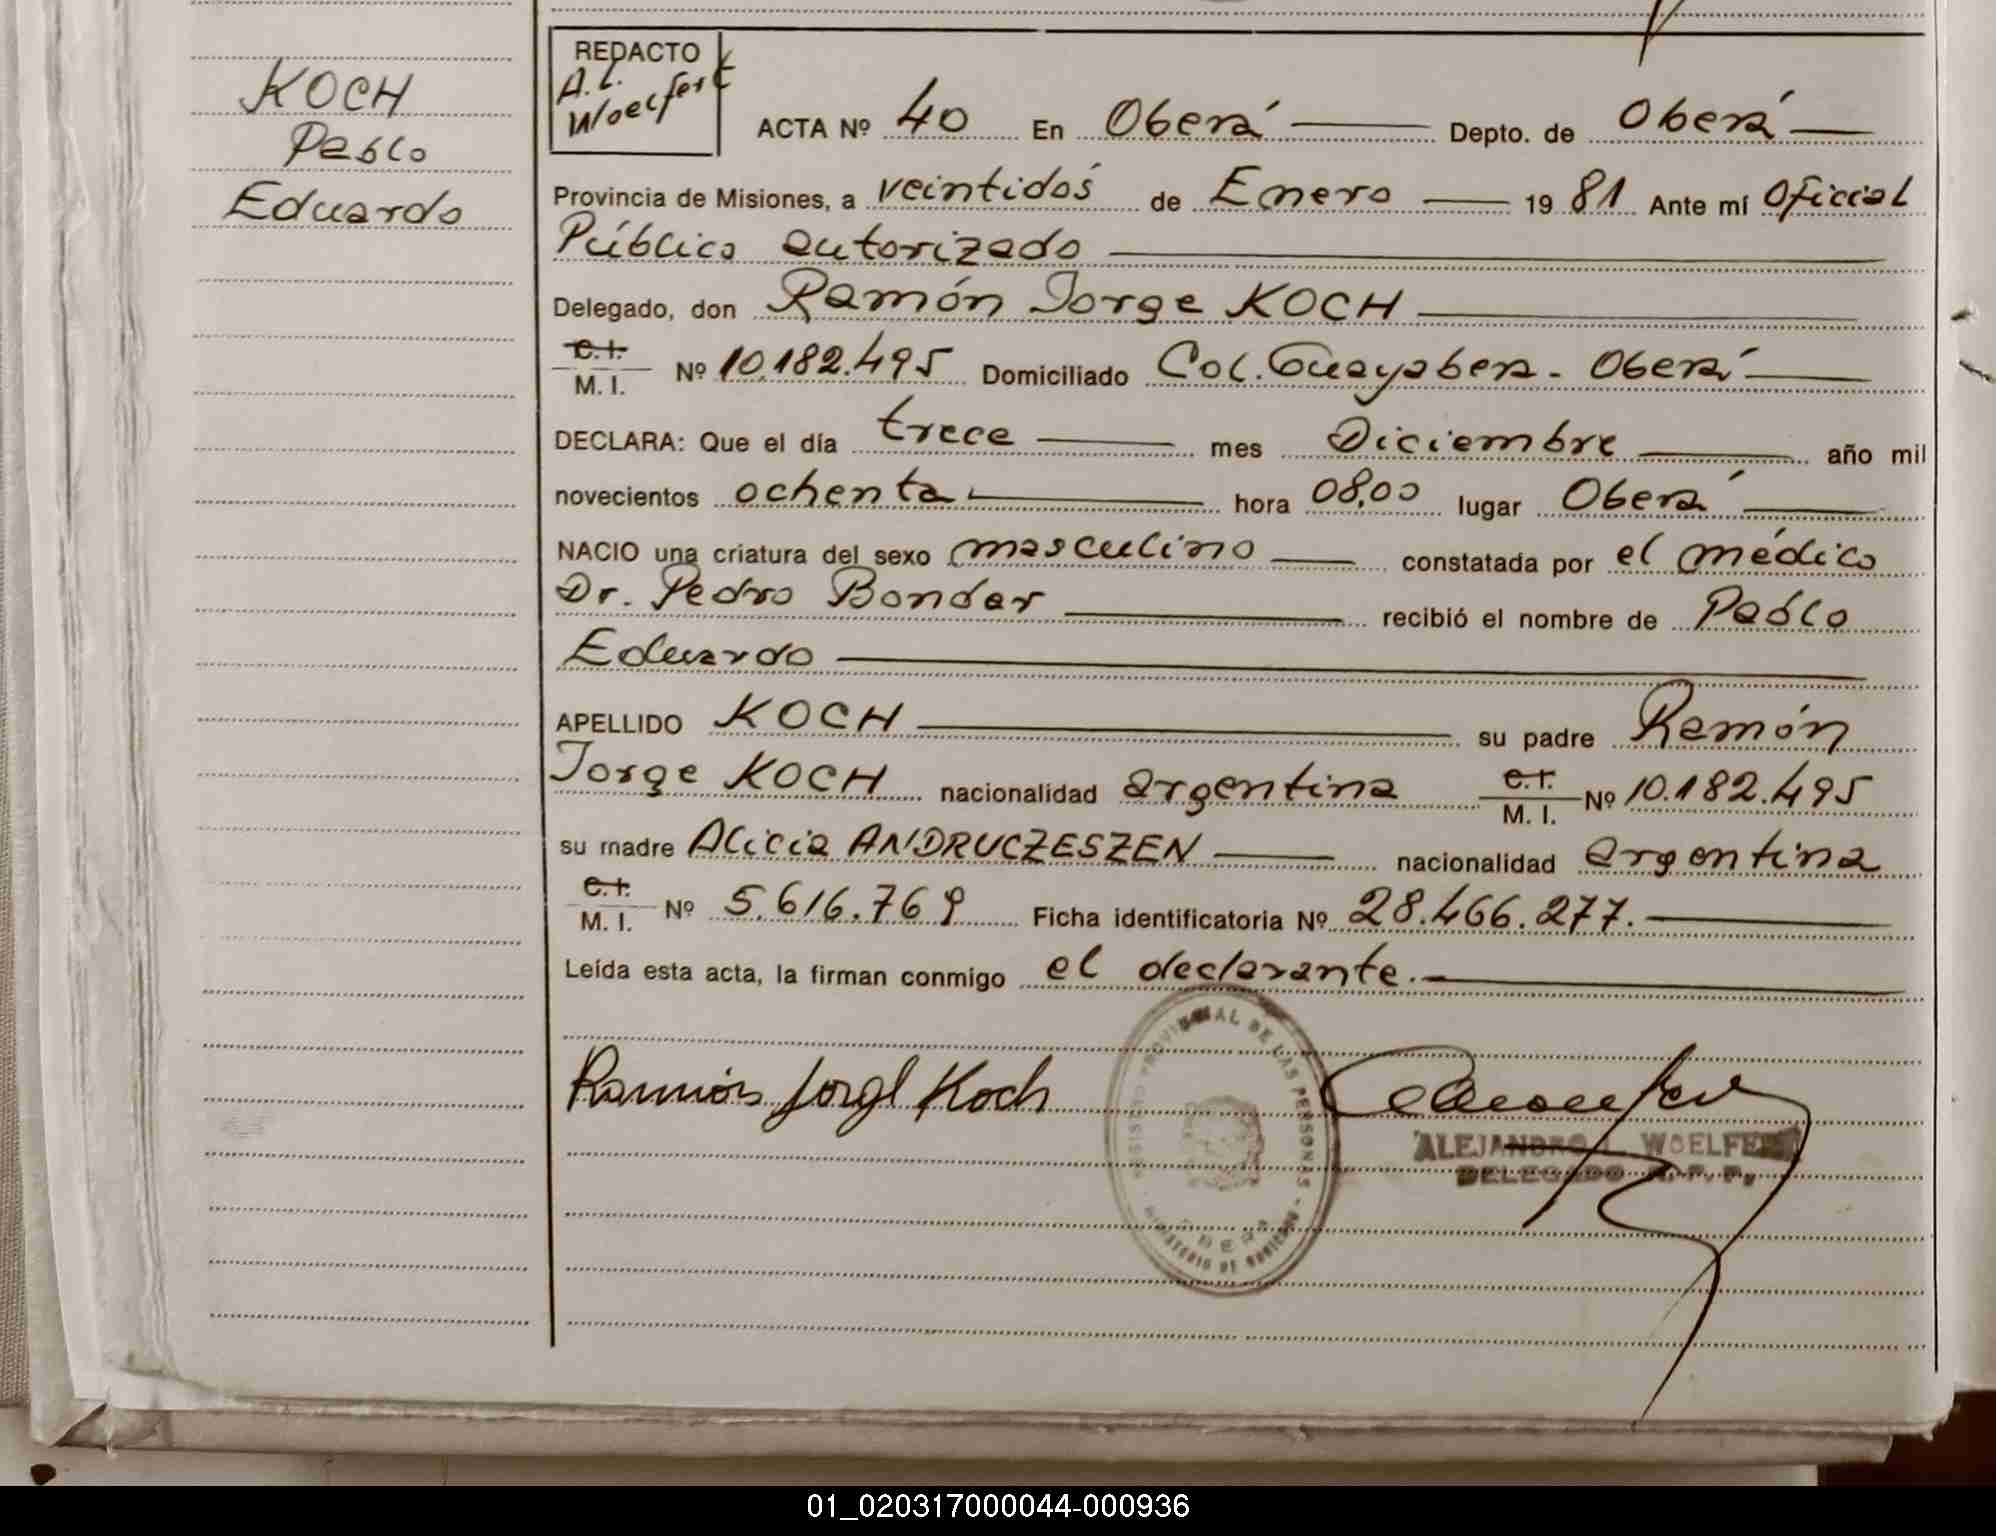 KOCH
Pablo
Eduardo
REDACTO
A. L.
Woelfert
ACTA Nº 40 En Oberá Depto. de Oberá
Provincia de Misiones, a veintidós de Enero 19 81 Ante mí Oficial
Público autorizado
Delegado, don Ramón Jorge KOCH
C.I.
M. I. Nº 10.182.495 Domiciliado Col. Guayabera - Oberá
DECLARA: Que el día trece mes Diciembre año mil
novecientos ochenta hora 08,00 lugar Oberá
NACIO una criatura del sexo masculino constatada por el médico
Dr. Pedro Bondar recibió el nombre de Pablo
Eduardo
APELLIDO KOCH su padre Ramón
Jorge KOCH nacionalidad argentina C.I. M. I. Nº 10.182.495
su madre Alicia ANDRUCZESZEN nacionalidad argentina
C.I.
M. I. Nº 5.616.769 Ficha identificatoria Nº 28.466.277.
Leída esta acta, la firman conmigo el declarante.
Ramón Jorge Koch
REGISTRO PROVINCIAL DE LAS PERSONAS
OBERA
ALEJANDRO L. WOELFERT
DELEGADO R. P. P.
01_020317000044-000936